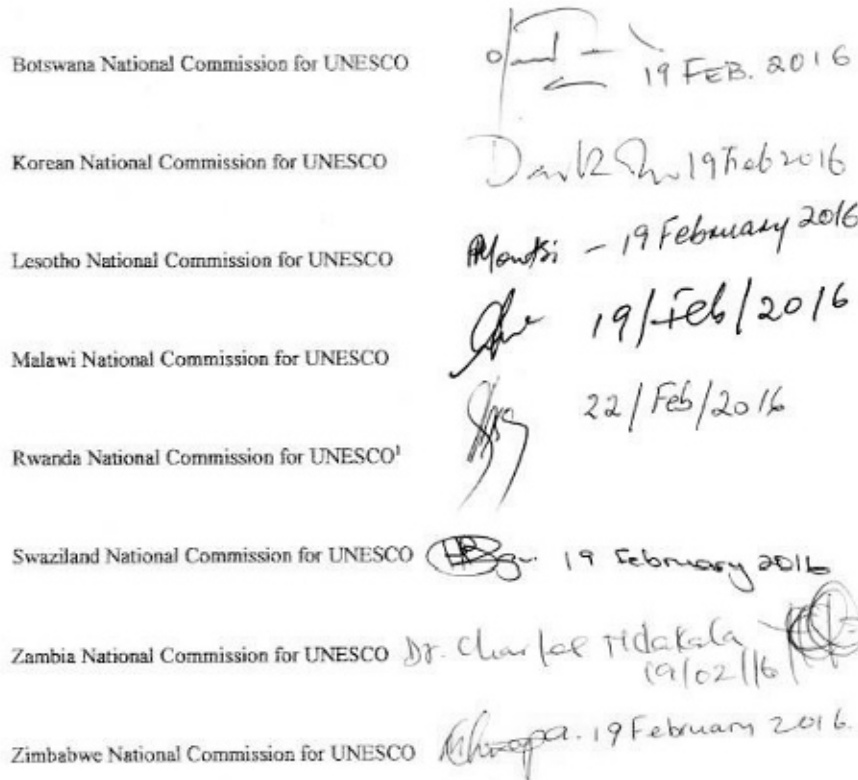 Botswana National Commission for UNESCO 19 FEB. 2016
Korean National Commission for UNESCO 19 Feb 2016
Lesotho National Commission for UNESCO - 19 February 2016
Malawi National Commission for UNESCO 19/Feb/2016
Rwanda National Commission for UNESCO¹ 22/Feb/2016
Swaziland National Commission for UNESCO 19 February 2016
Zambia National Commission for UNESCO Dr. Charles Ndakala
19/02/16
Zimbabwe National Commission for UNESCO 19 February 2016.